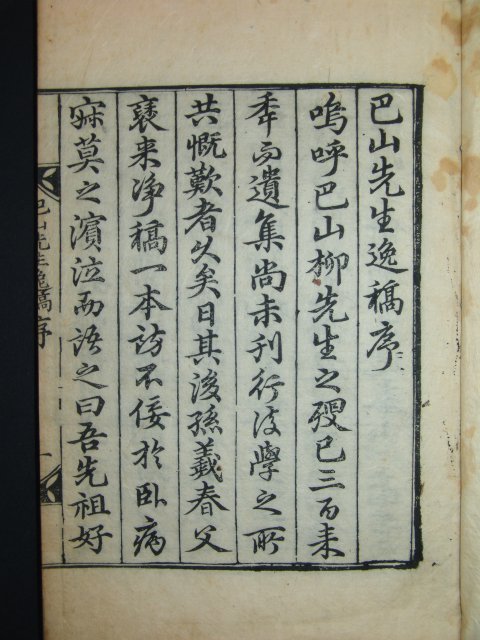 巴山先生逸稿序
嗚呼巴山柳先生之歿已三百来
秊而遺集尚未刊行後學之所
共慨歎者久矣日其後孫羲春父
裒来净稿一本訪不佞於卧病
寂莫之濱泣而語之曰吾先祖好
巴山先生逸稿序
一